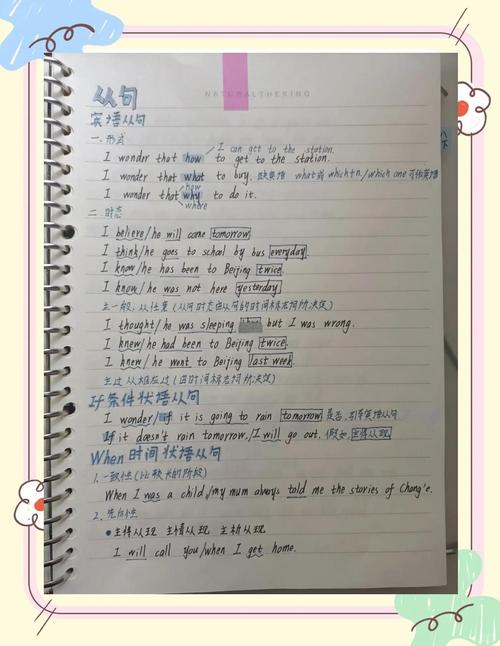 NATURALTHEKING
从句
宾语从句
一.形式
I can get to the station.
I wonder that how to get to the station.
I wonder that what to buy. 缺宾语 what或which+n./which one可作宾语
how
I wonder that why to do it.
where
二.时态
I believe/he will come tomorrow
I think/he goes to school by bus everyday.
I know/he has been to Beijing twice.
I know/he was not here yesterday
主一般,从任意(从句时态由从句的时间标志词所决定)
I thought/he was sleeping but I was wrong.
I knew/he had been to Beijing twice.
I knew/he went to Beijing last week.
主过从相应过(由时间标志词所决定)
If条件状语从句
I wonder/if it is going to rain tomorrow 是否,引导宾语从句
If it doesn't rain tomorrow,/I will go out. 假如,主将从现
When时间状语从句
1.一致性(比较长的阶段)
When I was a child,/my mum always told me the stories of Chang'e.
2.先后性
•主将从现 主情从现 主祈从现
I will call you/when I get home.